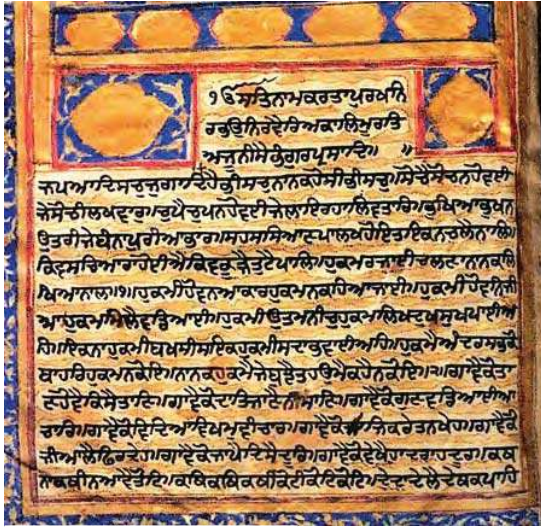 ੴਸਤਿਨਾਮਕਰਤਾਪੁਰਖਨਿ
ਰਭਉਨਿਰਵੈਰਿਅਕਾਲਿਮੂਰਤਿ
ਅਜੂਨੀਸੈਭੰਗੁਰਪ੍ਰਸਾਦਿ॥ ॥
ਜਪਆਦਿਸਚੁਜੁਗਾਦਿਹੈਭੀਸਚੁਨਾਨਕਹੋਸੀਭੀਸਚੁ।ਸੋਚੈਸੋਚਨਹੋਵਈ
ਜੇਸੋਚੀਲਖਵਾਰ।ਚੁਪੈਚੁਪਨਹੋਵਈਜੇਲਾਇਰਹਾਲਿਵਤਾਰ।ਭੁਖਿਆਭੁਖਨ
ਉਤਰੀਜੇਬੰਨਾਪੁਰੀਆਭਾਰ।ਸਹਸਸਿਆਣਪਾਲਖਹੋਇਤਇਕਨਚਲੈਨਾਲਿ।
ਕਿਵਸਚਿਆਰਾਹੋਈਐਕਿਵਕੂੜੈਤੁਟੈਪਾਲਿ।ਹੁਕਮਰਜਾਈਚਲਣਾਨਾਨਕਲਿ
ਖਿਆਨਾਲ।੧।ਹੁਕਮੀਹੋਵਨਆਕਾਰਹੁਕਮਨਕਹਿਆਜਾਈ।ਹੁਕਮੀਹੋਵਨਿਜੀ
ਆਹੁਕਮਮਿਲੈਵਡਿਆਈ।ਹੁਕਮੀਉਤਮਨੀਚੁਹੁਕਮਲਿਖਦੁਖਸੁਖਪਾਈਅ
ਹਿ।ਇਕਨਾਹੁਕਮੀਬਖਸੀਸਇਕਹੁਕਮੀਸਦਾਭਵਾਈਅਹਿ।ਹੁਕਮੈਅੰਦਰਸਭੁਕੋ
ਬਾਹਰਿਹੁਕਮਨਕੋਇ।ਨਾਨਕਹੁਕਮੈਜੇਬੁਝੈਤਹਉਮੈਕਹੈਨਕੋਇ।੨।ਗਾਵੈਕੋਤਾ
ਣਹੋਵੈਕਿਸੈਤਾਣਿ।ਗਾਵੈਕੋਦਾਤਿਜਾਣੈਨੀਸਾਣਿ।ਗਾਵੈਕੋਗੁਣਵਡਿਆਈਆ
ਚਾਰ।ਗਾਵੈਕੋਵਿਦਿਆਵਿਖਮਵੀਚਾਰ।ਗਾਵੈਕੋਸਾਜਿਕਰੇਤਨਖੇਹ।ਗਾਵੈਕੋ
ਜੀਆਲੈਫਿਰਦੇਹ।ਗਾਵੈਕੋਜਾਪੈਦਿਸੈਦੂਰਿ।ਗਾਵੈਕੋਵੇਖੈਹਾਦਰਾਹਦੂਰ।ਕਥ
ਨਾਕਥੀਨਆਵੈਤੋਟਿ।ਕਥਿਕਥਿਕਥੀਕੋਟੀਕੋਟਿਕੋਟਿ।ਦੇਦਾਦੇਲੈਦੇਥਕਪਾਹਿ